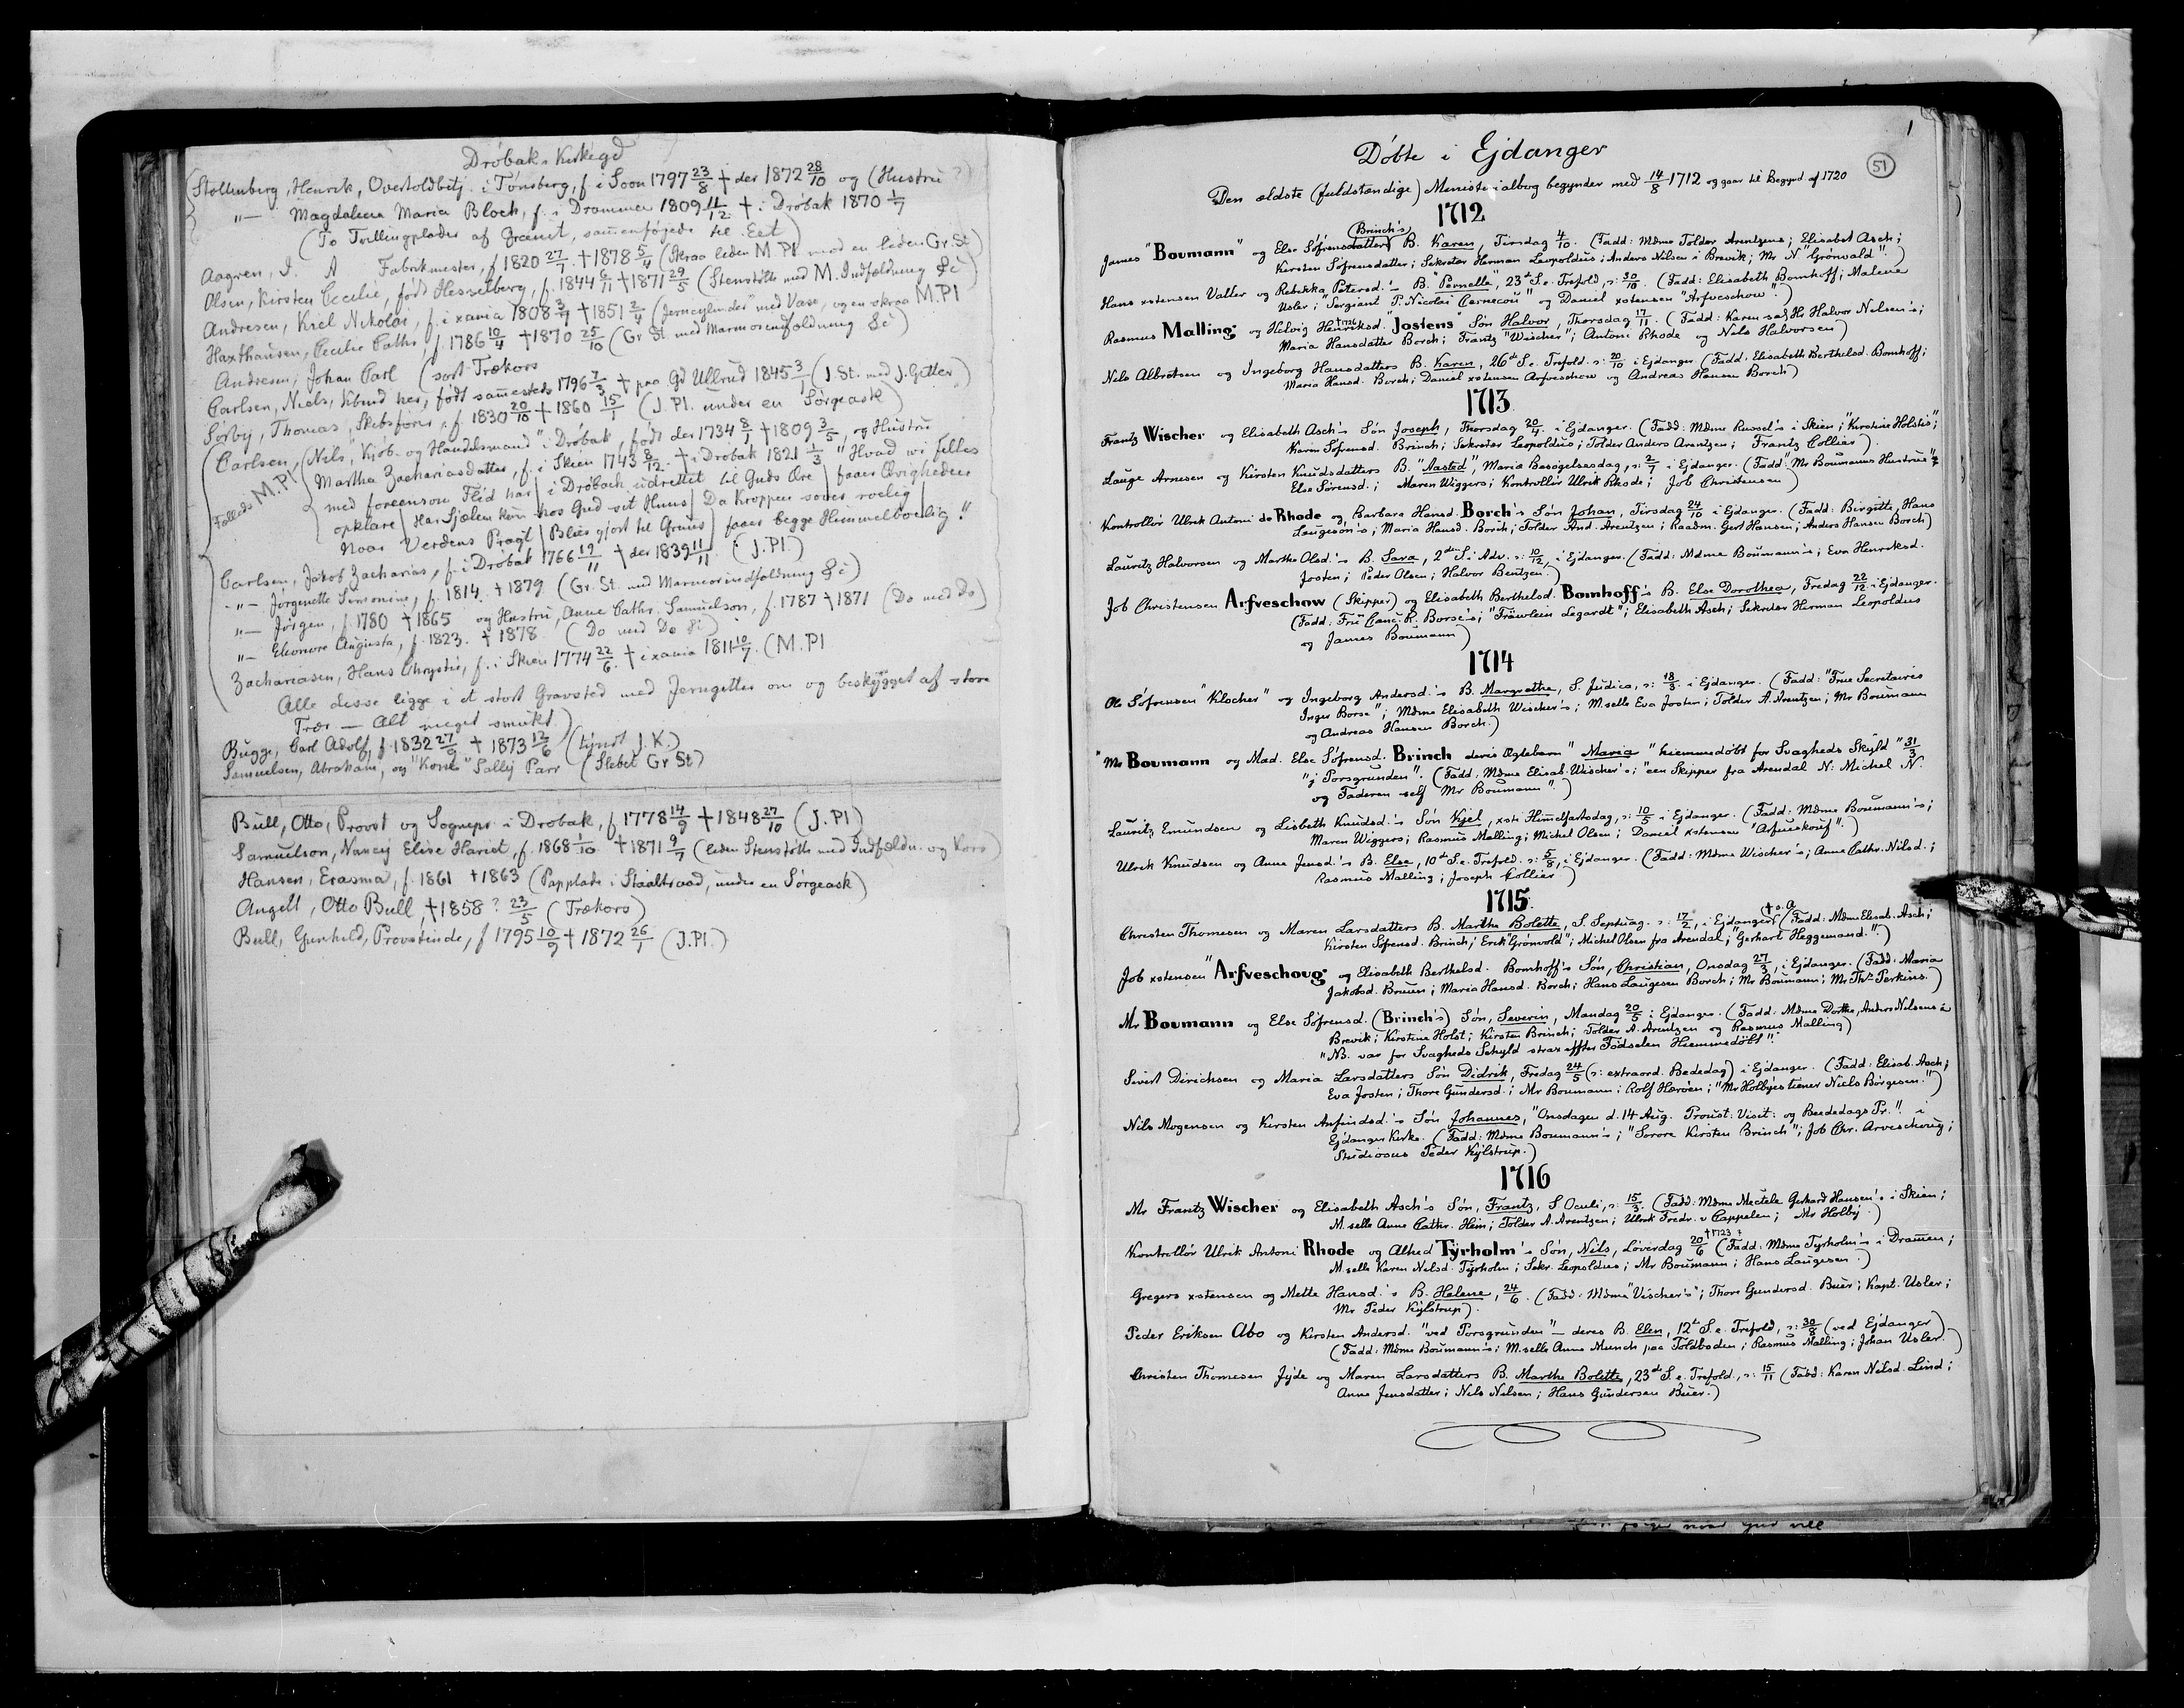 Dröbaks Kirkegd
Stoltenberg, Henrik, Overtoldbetj. i Tönsberg, f. i Soon 1797 23/8 † der 1872 28/10 og (Hustru ?)
"— Magdalena Maria Bloch, f. i Drammen 1809 11/12 † i Dröbak 1870 1/7
(To Tvillingplader af Granit, sam̄enföjede til Eet)
Aagren, I. A Fabrikmester, f 1820 27/7 † 1878 5/4 (Skraa liden M Pl. med en liden Gr. St)
Olsen, Kirsten Cecilie, född Hesselberg, f. 1844 6/11 † 1871 29/5 (Stenstötte med M. Indfældning &c)
Andresen, Kiel Nikolai, f. i xania 1808 3/9 † 1851 2/4 (Jerncylinder med Vase, og en skraa M.Pl
Haxthausen, Cecilie Cathr, f. 1786 10/4 † 1870 25/10 (Gr St. med Marmorindfældning &c)
Andresen, Johan Carl (sort Trækors
Carlsen, Niels, Kbmd her, född sam̄esteds 1796 7/3 † paa Gd Ullrud 1845 3/1 (J. St. med J. Gitter)
Sörby, Thomas, Skibsförer, f. 1830 20/10 † 1860 15/1 (J. Pl. under en Sörgeask)
Carlsen, (Nils, "Kjöb- og Handelsmand" i Dröbak, födt der 1734 8/1 † 1809 3/5, og Hustru
Fælleds M.Pl Martha Zachariasdatter, f. i Skien 1743 8/12 † i Dröbak 1821 1/3 "Hvad vi fælles
med foreenson Flid har | i Dröbach udrettet til Guds Ære | faaer Ævigheden
opklare | Har Sjælen kun hos Gud sit Huus | Da Kroppen sover roelig |
Naar Verdens Pragt | Blies gjort til Gruus | faaer begge Himmelboelig."
Carlsen, Jakob Zacharias, f. i Dröbak 1766 19/11 † der 1839 11/11 (J.Pl.)
"— Jörgenette Simonine, f. 1814 † 1879 (Gr. St. med Marmorindfældning &c)
"— Jörgen, f. 1780 † 1865 og Hustru, Anne Cathr. Samuelson, f. 1787 † 1871 (Do med Do)
"— Eleonore Augusta, f. 1823 † 1878 (Do med Do &c)
Zachariasen, Hans Chrystie, f. i Skien 1774 22/6 † i xania 1811 10/7. (M.Pl
Alle disse ligge i et stort Gravsted med Jerngitter om og beskygget af store
Trær — Alt meget smukt.)
Bugge, Carl Adolf, f. 1832 27/9 † 1873 12/6 (tyndt J.K.)
Samuelsen, Abraham, og "Kone" Sally Parr (Slebet Gr St)
Bull, Otto, Provst og Sognepr. i Dröbak, f 1778 14/9 † 1848 27/10 (J.Pl)
Samuelson, Nancy Elise Hariet, f. 1868 1/10 † 1871 9/7 (liden Stenstötte med Indfældn. og Kors)
Hansen, Erasma, f. 1861 † 1863 (Papplade i Staaltraad, under en Sörgeask)
Angell, Otto Bull, † 1858? 23/5 (Trækors)
Bull, Gunhild, Provstinde, f 1795 10/9 † 1872 26/1 (J.Pl.)
1
51
Döbte i Ejdanger
Den ældste (fuldstændige) Ministerialbog begynder med 14/8 1712 og gaar til Begynd af 1720
1712
James "Boumann" og Else Söfrensdatters (Brinch's) B. Karen, Tirsdag 4/10. (Fadd: Mdme Tolder Arentzens; Elisabet Asch;
Kirsten Söfrensdatter; Sekretær Herman Leopoldus; Anders Nilsen i Brevik; Mr N "Grönwald".)
Hans xstensen Valler og Rebekka Petersd.'s B. "Pernelle", 23de S. e. Trefold, ɔ: 30/10. (Fadd: Elisabeth Bomhoff; Malene
Usler; "Sergiant P. Nicolai Carnecou" og Daniel xstensen "Arfveschow".)
Rasmus Malling og Helvig Henriksd. †1736 "Jostens" Sön Halvor, Thorsdag 17/11. (Fadd: Karen sal. Hr Halvor Nilsen's;
Maria Hansdatter Borch; Frantz "Wischer"; Antoni Rhode og Nils Halvorsen)
Nels Albretsen og Ingeborg Hansdatters B. Karen, 26de S. e. Trefold. ɔ: 20/10 i Ejdanger (Fadd: Elisabeth Berthelsd. Bomhoff;
Maria Hansd. Borch; Daniel xstensen Arfveschow og Andreas Hansen Borch)
1713.
Frantz Wischer og Elisabeth Asch's Sön Joseph, Thorsdag 20/4 i Ejdanger. (Fadd: Mdme Russel's i Skien; "Kirstine Holstis";
Karen Söfrensd. Brinch; Sekretær Leopoldus; Tolder Anders Arentzen; Frantz Collier)
Lauge Arnesen og Kirsten Knudsdatters B. "Aasted", Mariæ Besögelsesdag, ɔ: 2/7 i Ejdanger. (Fadd: "Mr Boumanns Hustrue";
Else Sörensd.; Maren Wiggers; Kontrollör Ulrik Rhode; Job Christensen)
Kontrollör Ulrik Antoni de Rhode og Barbara Hansd. Borch's Sön Johan, Tirsdag 24/10 i Ejdanger. (Fadd: Birgitte, Hans
Laugesön's; Maria Hansd. Borch; Tolder And. Arentzen; Raadm. Gert Hansen; Anders Hansen Borch)
Lauritz Halvorsen og Marthe Olsd.'s B. Sara, 2den S. i Adv. ɔ: 10/12, i Ejdanger. (Fadd: Mdme Boumann's; Eva Henriksd.
Josten; Peder Olsen; Halvor Bentzen.)
Job Christensen Arfveschow (Skipper) og Elisabeth Berthelsd. Bomhoff's B. Else Dorothea, Fredag 22/12 i Ejdanger.
(Fadd: Fru Canc. R. Borse's; "Fröwlein Legardt"; Elisabeth Asch; Sekretær Herman Leopoldus
og James Boumann)
1714
Ole Söfrensen "Klocher" og Ingeborg Andersd.'s B. Margrethe, S. Judica, ɔ: 18/3 i Ejdanger. (Fadd: "Frue Secretairis
Inger Borse"; Mdme Elisabeth Wischer's; M.selle Eva Josten; Tolder A. Arentzen; Mr Boumann
og Andreas Hansen Borch.)
"Mr Boumann og Mad. Else Söfrensd. Brinch deris Ægtebarn "Maria" hiemmedöbt for Svagheds Skyld" 31/3
"i Porsgrunden". (Fadd: Mdme Elisab. Wischer's; "een Skipper fra Arendal N: Michel N.
og Faderen self Mr Boumann".)
Lauritz Emundsen og Lisbeth Knudsd.'s Sön Kjel, xsti Himelfartsdag, ɔ: 10/5 i Ejdanger. (Fadd: Mdme Boumann's;
Maren Wiggers; Rasmus Malling; Michel Olsen; Daniel xstensen "Arfueskouf".)
Ulrik Knudsen og Anne Jensd.'s B. Else, 10de S. e. Trefold. ɔ: 5/8, i Ejdanger. (Fadd: Mdme Wischer's; Anne Cathr. Nilsd.;
Rasmus Malling; Joseph Collier)
1715.
Christen Thomesen og Maren Larsdatters B. Marthe Bolette, S. Septuag. ɔ: 17/2, i Ejdanger († s. A (Fadd: Mdme Elisab. Asch;
Kirsten Söfrensd. Brinch; Erik "Grönvold"; Michel Olsen fra Arendal; "Gerhart Heggemand.")
Job xstensen "Arfveschoug" og Elisabeth Berthelsd. Bomhoff's Sön, Christian, Onsdag 27/3, i Ejdanger. (Fadd: Maria
Jakobsd. Bruun; Maria Hansd. Borch; Hans Laugesen Borch; Mr Boumann; Mr Ths Perkins.)
Mr Boumann og Else Söfrensd. (Brinch's) Sön, Severin, Mandag 20/5 i Ejdanger. (Fadd: Mdme Dorthe, Anders Nilsens i
Brevik; Kirstine Holst; Kirsten Brinch; Tolder A. Arentzen og Rasmus Malling)
"NB. var for Svagheds Schyld strax effter Födselen Hiemmedöbt".
Sivert Dirichsen og Maria Larsdatters Sön Didrik, Fredag 24/5 (ɔ: extraord. Bededag) i Ejdanger. (Fadd: Elisab. Asch;
Eva Josten; Thore Gundersd.; Mr Boumann; Rolf Hæröen; "Mr Holbyes tiener Niels Börgesen.")
Nils Mogensen og Kirsten Anfindsd.'s Sön Johannes, "Onsdagen d. 14 Aug. Proust: Visit: og Beededags Pr." i
Ejdanger Kirke. (Fadd: Mdme Boumann's; "Sorore Kirsten Brinch"; Job Chr. Arveschoug;
Studiosus Peder Kylstrup.)
1716
Mr Frantz Wischer og Elisabeth Asch's Sön, Frantz, S Oculi, ɔ: 15/3. (Fadd: Mdme Mectele Gerhard Hansen's i Skien;
M.selle Anne Cathr. Hein; Tolder A. Arentzen; Ulrik Fredr. v Cappelen; Mr Holby.)
Kontrollör Ulrik Antoni Rhode og Alhed Tyrholm's Sön, Nils, Löverdag 20/6 †1723 ? (Fadd: Mdme Tyrholm's i Dram̄en;
M.selle Karen Nilsd. Tyrholm; Sekr. Leopoldus; Mr Boumann; Hans Laugesen.)
Gregers xstensen og Mette Hansd.'s B. Helene, 24/6. (Fadd: Mdme "Vischer's"; Thore Gundersd. Buer; Kapt. Usler;
Mr Peder Kylstrup).
Peder Eriksen Abo og Kirsten Andersd. "ved Porsgrunden" — deres B. Elen, 12te S. e. Trefold, ɔ: 30/8 (ved Ejdanger)
(Fadd: Mdme Boumann's; M.selle Anne Munch paa Toldboden; Rasmus Malling; Johan Usler.)
Christen Thomesen Jyde og Maren Larsdatters B. Marthe Bolette, 23de S. e. Trefold, ɔ: 15/11 (Fadd: Karen Nilsd. Lind;
Anne Jensdatter; Nils Nilsen; Hans Gundersen Buer.)